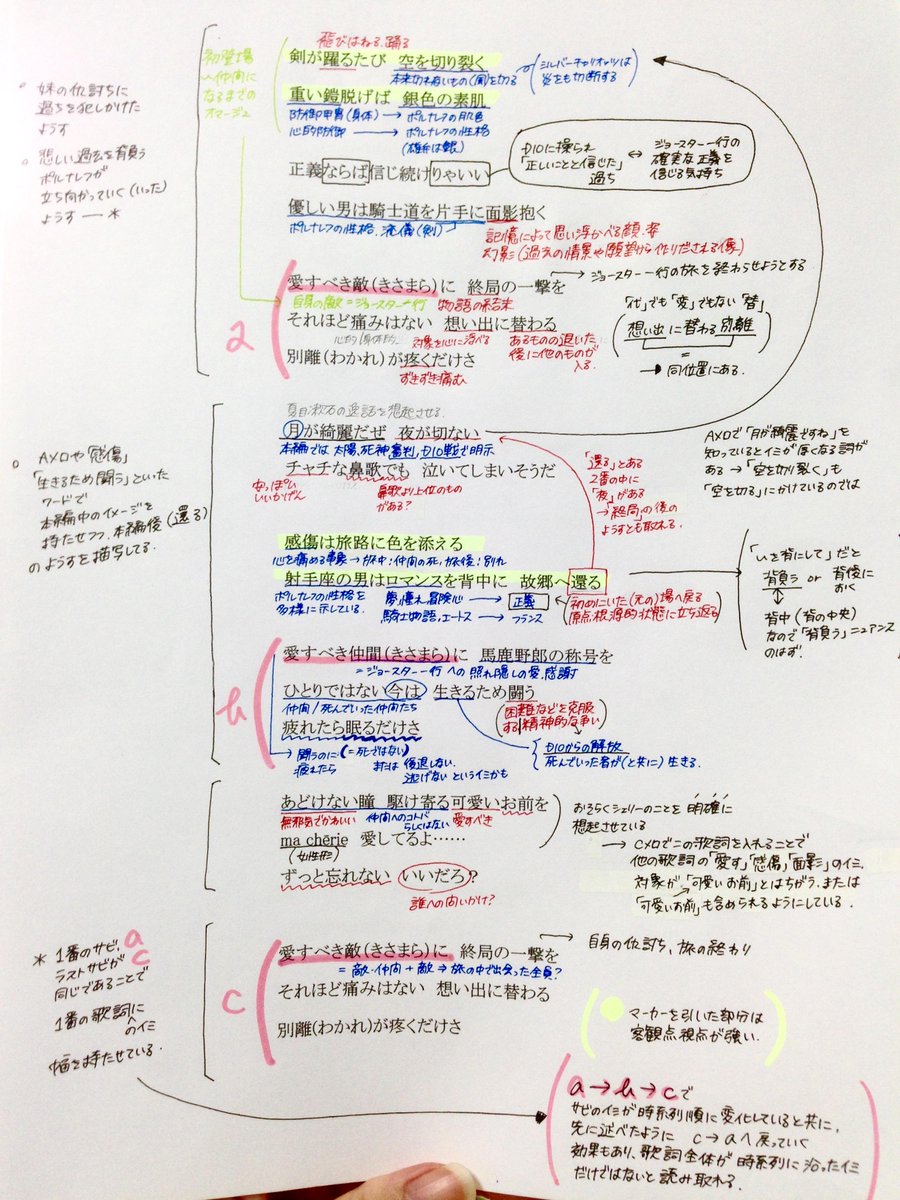 飛びはねる、踊る
剣が躍るたび 空を切り裂く
本来切れないもの(風)を切る
シルバーチャリオッツは
炎をも切断する
初登場
〜仲間に
なるまでの
オマージュ
重い鎧脱げば 銀色の素肌
防御甲冑(身体)→ポルナレフの肌色
心的防御→ポルナレフの性格
(雄弁は銀)
。妹の仇討ちに
過ちを犯しかけた
ようす
。悲しい過去を背負う
ポルナレフが
立ち向かっていく(いった)
ようす ― *
正義ならば信じ続けりゃいい
DIOに操られ
「正しいことと信じた」
過ち
↔
ジョースター一行の
確実な正義を
信じる気持ち
優しい男は騎士道を片手に面影抱く
ポルナレフの性格、流儀(剣)
記憶によって思い浮かべる顔・姿
幻影(過去の情景や願望から作りだされる像)
a
愛すべき敵(きさまら)に 終局の一撃を
→ジョースター一行の旅を終わらせようとする
自身の敵=ジョースター一行 物語の結末
それほど痛みはない 想い出に替わる
心的/身体的
対象を心に浮べる
あるものの退いた
後に他のものが
入る
「代」でも「変」でもない「替」
想い出に替わる別離
=
→同位置にある.
別離(わかれ)が疼くだけさ
ずきずき痛む
夏目漱石の逸話を想起させる
月が綺麗だぜ 夜が切ない
本編では太陽、死神、審判、DIO戦で明示
チャチな鼻歌でも 泣いてしまいそうだ
安っぽい
いいかげん
鼻歌より上位のもの
がある?
。Aメロや「感傷」
「生きるため闘う」といった
ワードで
本編中のイメージを
持たせつつ、本編後(還る)
のようすを描写してる.
「還る」とある
2番の中に
「夜」がある
→「終局」の後の
ようすとも取れる.
Aメロで「月が綺麗ですね」を
知っているとイミが厚くなる詞が
ある→「空を切り裂く」も
「空を切る」にかけているのでは
感傷は旅路に色を添える
心を痛める事象→旅中:仲間の死、旅後:別れ
射手座の男はロマンスを背中に 故郷へ還る
ポルナレフの性格を
多様に示している.
夢、憧れ、冒険心→正義
騎士物語、エートス→フランス
初めにいた(元の)場へ戻る
原点、根源的状態に立ち返る
「いを背にして」だと
背負う or 背後に
おく
背中(背の中央)
なので「背負う」ニュアンス
のはず.
b
愛すべき仲間(きさまら)に 馬鹿野郎の称号を
=ジョースター一行への照れ隠しの愛、感謝
ひとりではない今は 生きるため闘う
仲間/死んでいった仲間たち
困難などを克服
する精神的な争い
疲れたら眠るだけさ
→闘うのに(=死ではない)
疲れたら または後退しない.
逃げないというイミかも
DIOからの解放
死んでいった者が(と共に)生きる.
あどけない瞳 駆け寄る可愛いお前を
無邪気でかわいい 仲間へのコトバ
らしくはない 愛すべき
ma chērie 愛してるよ……
(女性形)
ずっと忘れない いいだろ?
誰への問いかけ?
おそらくシェリーのことを明確に
想起させている
→Cメロでこの歌詞を入れることで
他の歌詞の「愛す」「感傷」「面影」のイミ、
対象が「可愛いお前」とはちがう、または
「可愛いお前」も含められるようにしている.
* 1番のサビ、a
ラストサビがc
同じであることで
1番の歌詞に
へのイミ
幅を持たせている.
c
愛すべき敵(きさまら)に 終局の一撃を
→自身の仇討ち、旅の終わり
=敵・仲間+敵⇒旅の中で出会った全員?
それほど痛みはない 想い出に替わる
別離(わかれ)が疼くだけさ
マーカーを引いた部分は
客観点視点が強い.
a→b→cで
サビのイミが時系列順に変化していると共に、
先に述べたように c→aへ戻っていく
効果もあり、歌詞全体が時系列に沿ったイミ
だけではないと読み取れる.